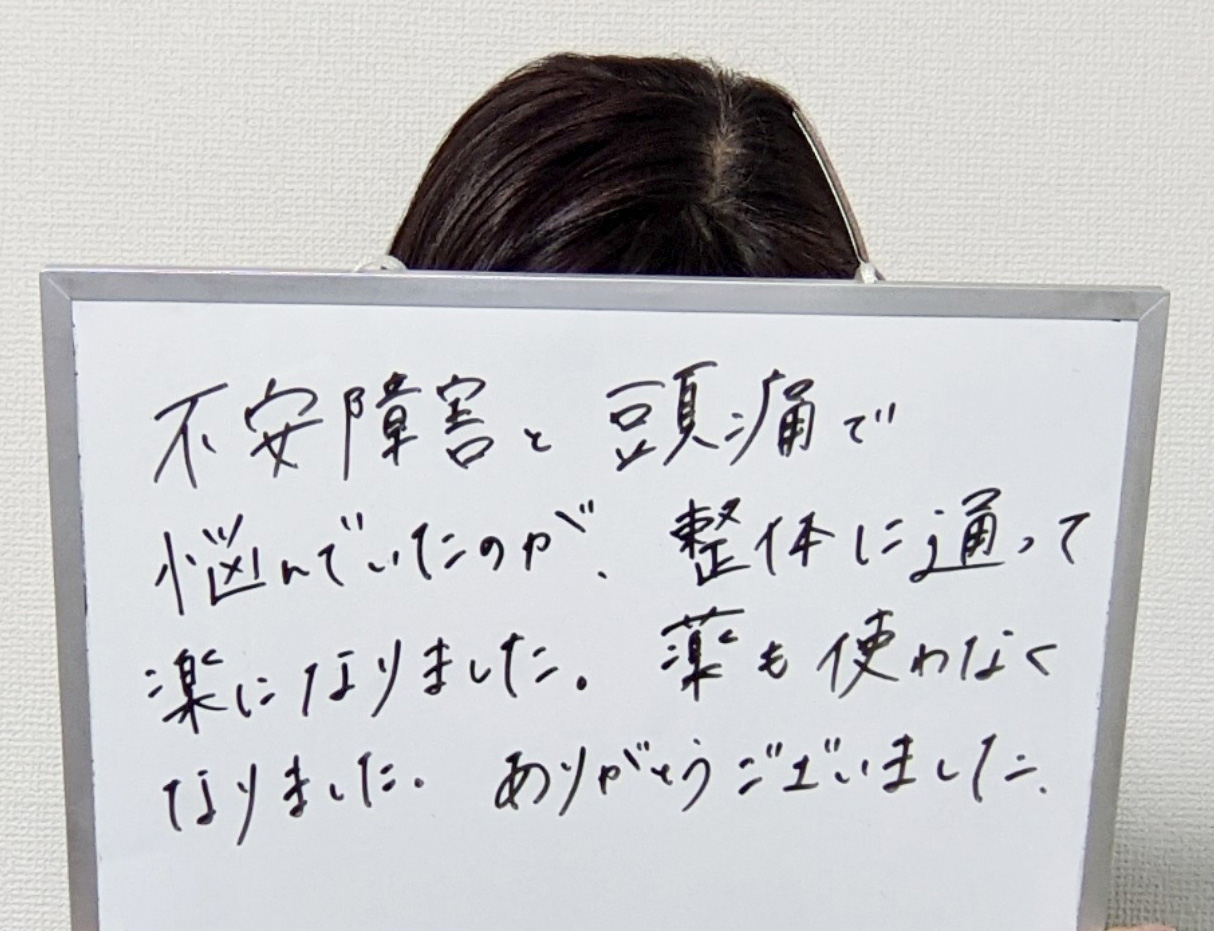 不安障害と頭痛で
悩んでいたのが、整体に通って
楽になりました。薬も使わなく
なりました。ありがとうございました。